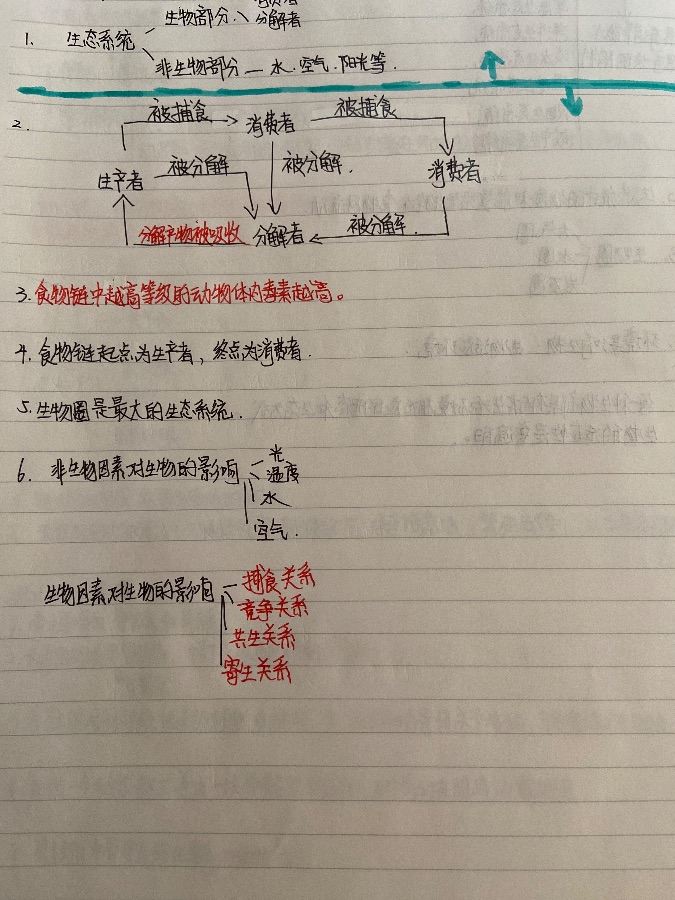 生物部分
分解者
1. 生态系统
非生物部分 — 水.空气.阳光等.
2.
被捕食 消费者 被捕食
生产者 被分解 被分解. 消费者
分解产物被吸收 分解者 被分解.
3.食物链中越高等级的动物体内毒素越高。
4.食物链起点为生产者，终点为消费者.
5.生物圈是最大的生态系统.
6. 非生物因素对生物的影响
光
温度
水
空气.
生物因素对生物的影响
捕食关系
竞争关系
共生关系
寄生关系